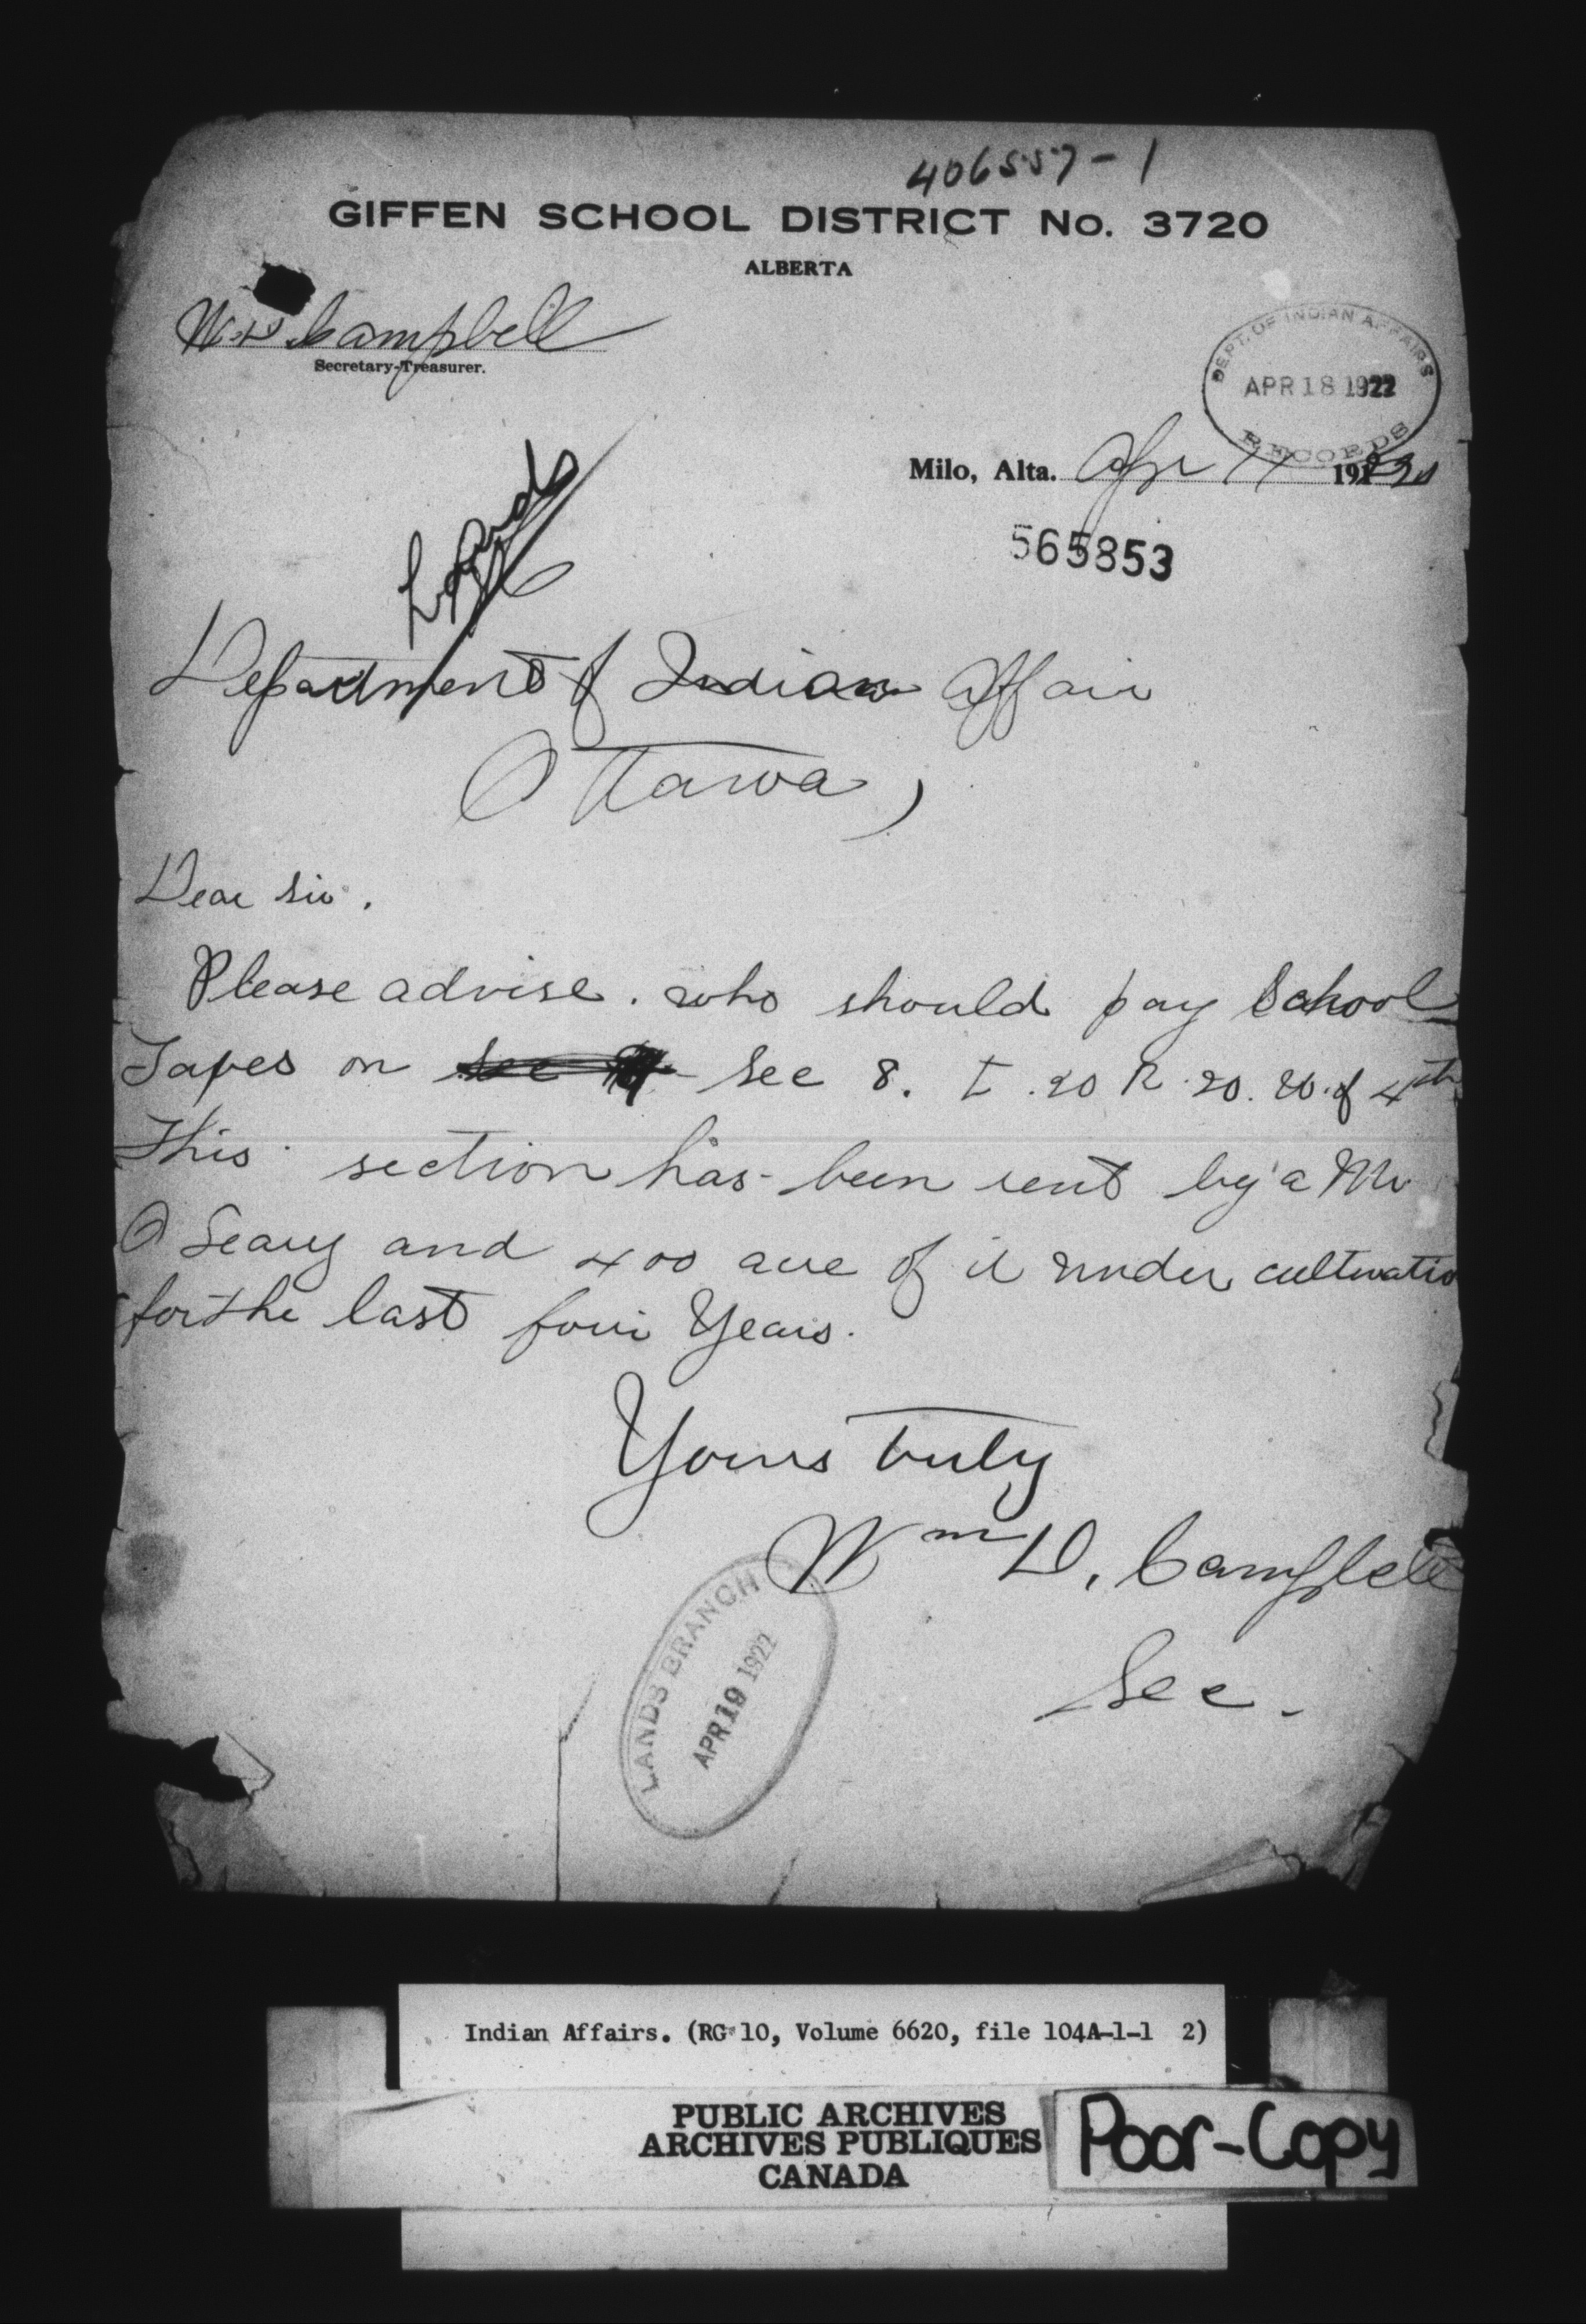 406557-1
GIFFEN SCHOOL DISTRICT No. 3720
ALBERTA
W.D. Campbell
Secretary-Treasurer.
DEPT. OF INDIAN AFFAIRS
APR 18 1922
RECORDS
Milo, Alta. Apr 11 1922
565853
Lands
Department of Indian Affair
Ottawa,
Dear Sir.
Please advise. who should pay School
Taxes on Sec 8. T. 20 R. 20. W. of 4th
This section has been rent by a Mr
O Leary and 400 acre of it under cultivatio
for the last four Years.
Yours truly
Wm D. Campbell
Sec.
LANDS BRANCH
APR 19 1922
Indian Affairs. (RG 10, Volume 6620, file 104A-1-1 2)
PUBLIC ARCHIVES
ARCHIVES PUBLIQUES
CANADA
Poor-Copy